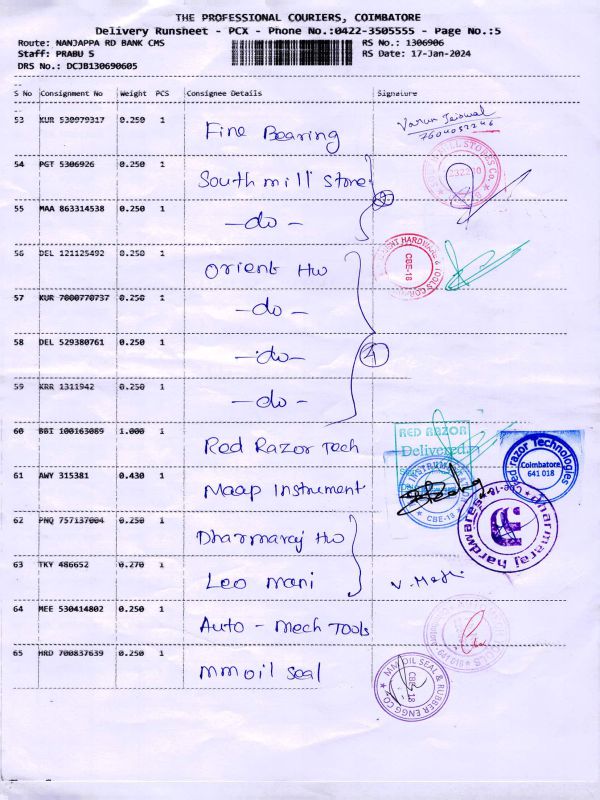 THE PROFESSIONAL COURIERS, COIMBATORE
Delivery Runsheet - PCX - Phone No.:0422-3505555 - Page No.:5
Route: NANJAPPA RD BANK CMS RS No.: 1306906
Staff: PRABU S RS Date: 17-Jan-2024
DRS No.: DCJB130690605
S No Consignment No Weight PCS Consignee Details Signature
53 KUR 530979317 0.250 1 Fine Bearing Varun Jaiswal
7604052246
54 PGT 5306926 0.250 1 South mill store
MILL STORES Co.
55 MAA 863314538 0.250 1 -do-
56 DEL 121125492 0.250 1 Orient Hw
HARDWARE & TOOLS CORPORATION
CBE-18
57 KUR 7000770737 0.250 1 -do-
58 DEL 529380761 0.250 1 -do-
4
59 KRR 1311942 0.250 1 -do-
60 BBI 100163089 1.000 1 Red Razor Tech
RED RAZOR
Delivered
red razor Technologies
Coimbatore
641 018
61 AWY 315381 0.430 1 Maap Instrument
INSTRUMENT
CBE-18
62 PNQ 757137004 0.250 1 Dharmaraj Hw
dharmaraj hardwares
63 TKY 486652 0.270 1 Leo mani
64 MEE 530414802 0.250 1 Auto - Mech Tools
65 HRD 700837639 0.250 1 mm oil seal
MM OIL SEAL & RUBBER ENGG CO.
CBE-18